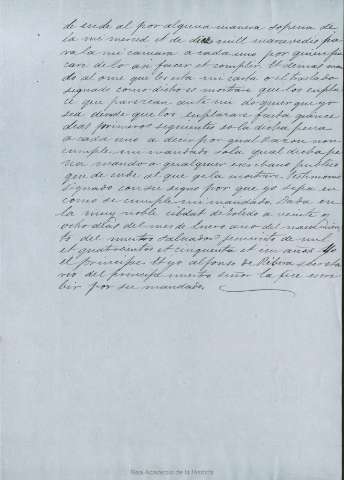 de ende al por alguna manera so pena de
la mi merced et de diez mill maravedis pa
ra la mi camara a cada uno por quien fin
care de lo asi facer et complir. Et demas man
do al ome que les esta mi carta o el traslado
signado como dicho es mostrare que los empla
ce que parezcan ante mi do quier que yo
sea desde que los emplazare fasta quince
dias primeros seguientes so la dicha pena
a cada uno a decir por qual razon non
cumple mi mandado so la qual dicha pe
na mando a qualquier escribano publico
que de ende al que gela mostrare testimonio
signado con su signo por que yo sepa en
como se cumple mi mandado. Dada en
la muy noble cibdat de Toledo a veinte y
ocho dias del mes de Enero año del nascimien
to del nuestro Salvador Jesucristo de mil
et quatrocientos et cinquenta et un años. Yo
el principe. Et yo Alfonso de secreta
rio del principe nuestro señor la fice escre
bir por su mandado.
Real Academia de la Historia